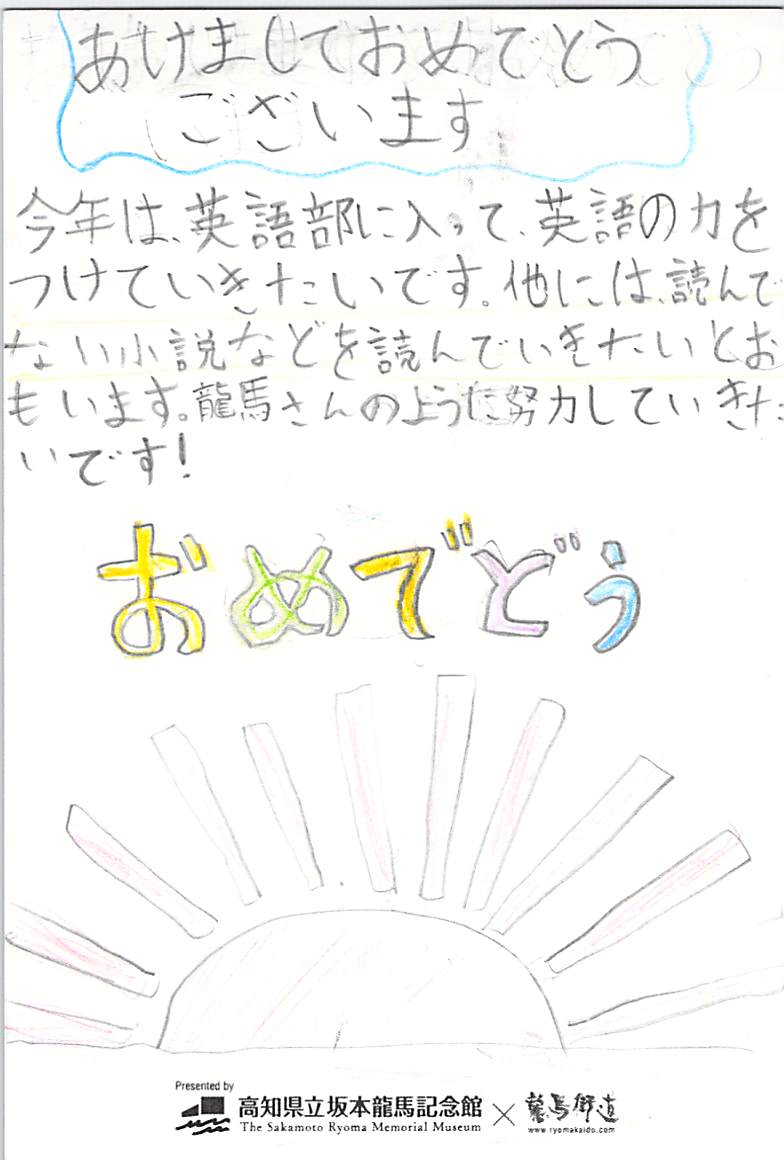 あけましておめでとう
ございます
今年は、英語部に入って、英語の力を
つけていきたいです。他には、読んで
ない小説などを読んでいきたいとお
もいます。龍馬さんのように努力していきた
いです!
おめでどう
Presented by
高知県立坂本龍馬記念館
The Sakamoto Ryoma Memorial Museum
×
龍馬街道
www.ryomakaido.com